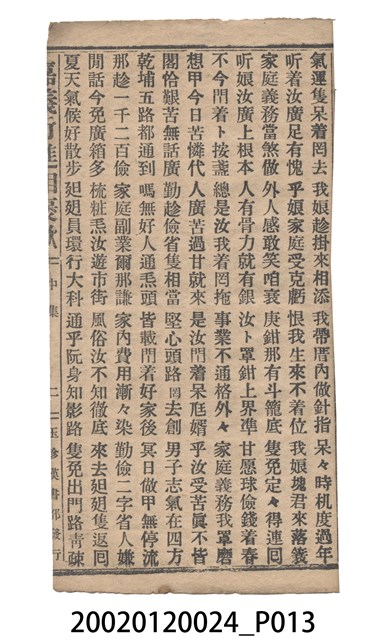 氣運隻呆着罔去 我娘趁掛來相添 我帶厝内做針指 呆々時机度過年
听着汝廣足有愧 乎娘家庭受克虧 恨我生來不着位 我娘塊君來落衰
家庭義務當煞做 外人感敢笑咱衰 庚鉗那有斗籠底 隻免定々得連囘
听娘汝廣上根本 人有骨力就有銀 汝卜罩鉗上界準 甘愿球儉錢着春
不今門着卜按盞 總是汝我着罔拖 事業不通格外々 家庭義務我罩磨
想甲今日苦憐代 人廣苦過甘就來 是汝門着呆尫婿 乎汝受苦眞不皆
閣恰艱苦無話廣 勤趁儉省隻相當 堅心頭路罔去創 男子志氣在四方
乾埔五路都通到 嗎無好人通炁頭 皆載門着好家後 冥日做甲無停流
那趁一千二百儉 家庭副業爾那謙 家内費用漸々染 勤儉二字省人嫌
閒話今免廣箱多 梳粧炁汝遊市街 風俗汝不知徹底 來去廻廻隻返囘
夏天氣候好散步 廻廻員環行大科 通乎阮身知影路 隻免出門路靑疎
嘉義行進相褒歌 中集 二 玉珍漢書部發行
20020120024_P013